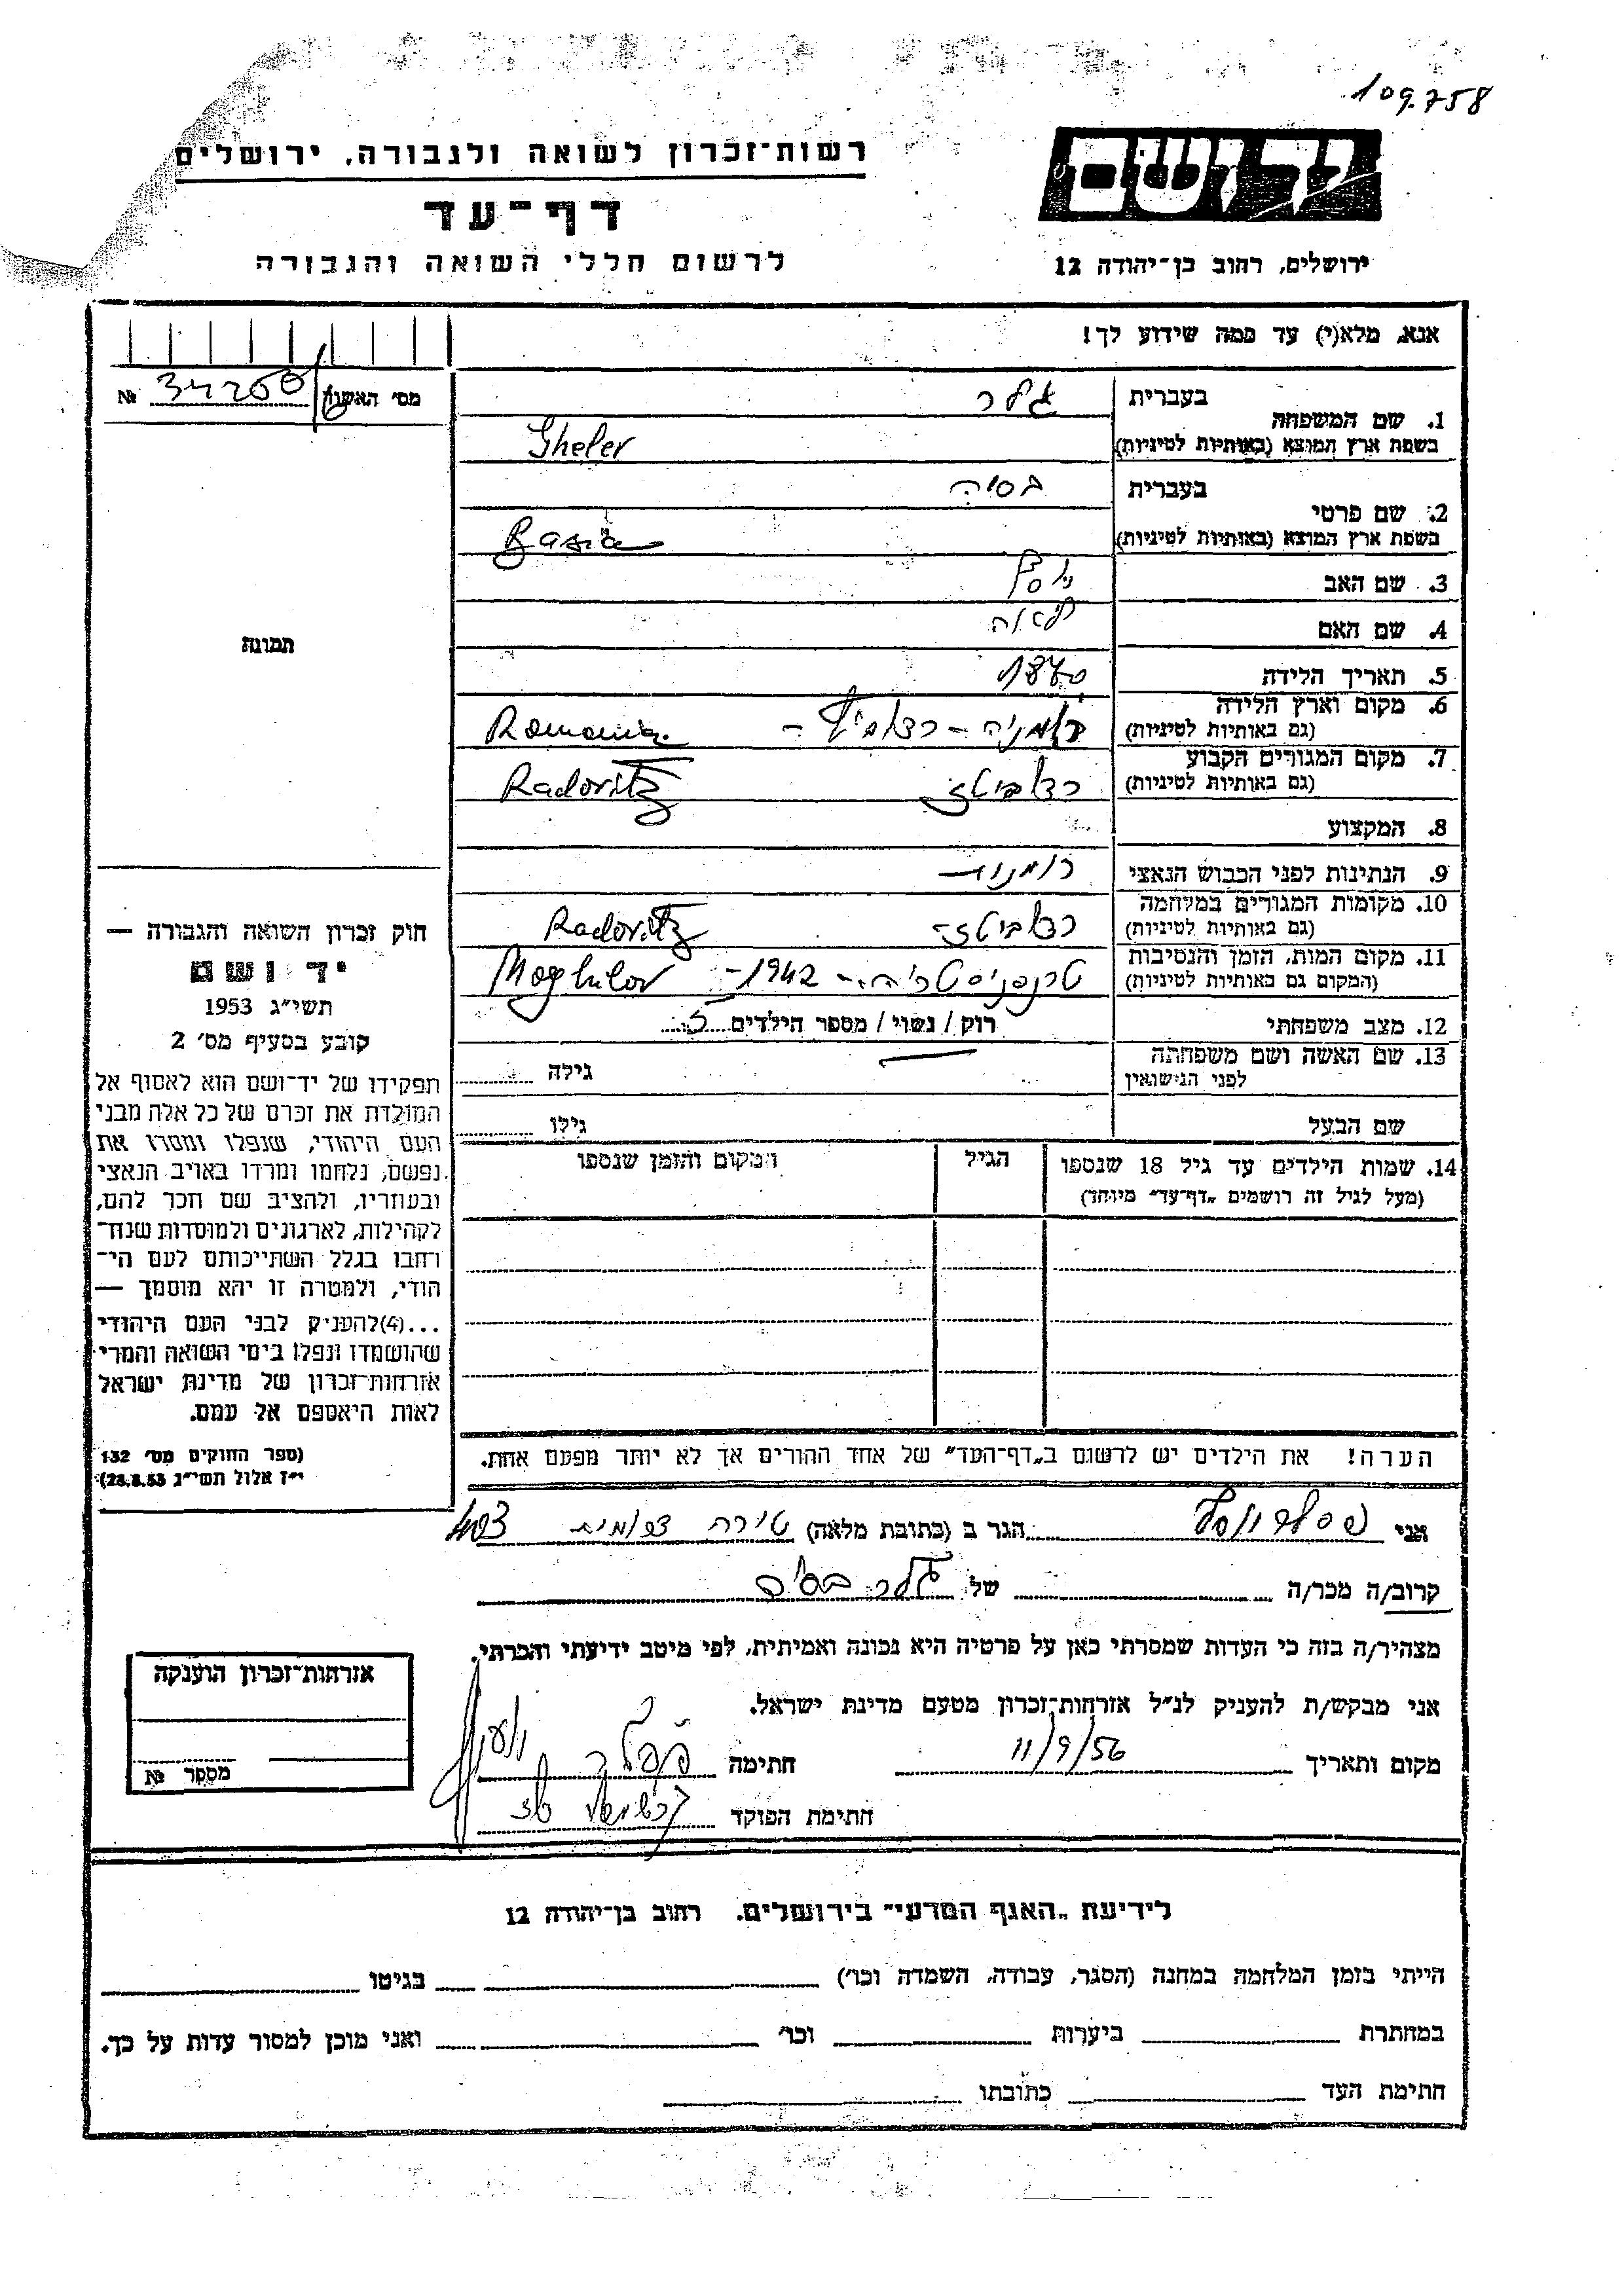 109.758
יד ושם
רשות־זכרון לשואה ולגבורה, ירושלים
דף־עד
לרשום חללי השואה והגבורה
ירושלים, רחוב בן־יהודה 12
אנא, מלא(י) עד כמה שידוע לך!
מס׳ האשה № 34260
1. שם המשפחה
בעברית גלר
בשפת ארץ המוצא (באותיות לטיניות) Gheler
2. שם פרטי
בעברית בסיה
בשפת ארץ המוצא (באותיות לטיניות) Basia
3. שם האב יוסף
4. שם האם לאה
5. תאריך הלידה 1870
6. מקום וארץ הלידה
(גם באותיות לטיניות) רומניה – – Romania
7. מקום המגורים הקבוע
(גם באותיות לטיניות) רדוביטז Radovitz
8. המקצוע
9. הנתינות לפני הכבוש הנאצי רומנית
10. מקומות המגורים במלחמה
(גם באותיות לטיניות) רדוביטז Radovitz
11. מקום המות, הזמן והנסיבות
(המקום גם באותיות לטיניות) טרנסניסטריה – 1942 – Moghilov
12. מצב משפחתי רוק / נשוי / מספר הילדים 5
13. שם האשה ושם משפחתה
לפני הנישואין גילה
שם הבעל גילו
14. שמות הילדים עד גיל 18 שנספו
(מעל לגיל זה רושמים „דף־עד" מיוחד)
הגיל
המקום והזמן שנספו
הערה! את הילדים יש לרשום ב„דף־העד" של אחד ההורים אך לא יותר מפעם אחת.
תמונה
חוק זכרון השואה והגבורה —
יד ושם
תשי״ג 1953
קובע בסעיף מס׳ 2
תפקידו של יד־ושם הוא לאסוף אל
המולדת את זכרם של כל אלה מבני
העם היהודי, שנפלו ומסרו את
נפשם, נלחמו ומרדו באויב הנאצי
ובעוזריו, ולהציב שם וזכר להם,
לקהילות, לארגונים ולמוסדות שנח־
רחבו בגלל השתייכותם לעם הי־
הודי, ולמטרה זו יהא מוסמך —
...(4) להעניק לבני העם היהודי
שהושמדו ונפלו בימי השואה והמרי
אזרחות־זכרון של מדינת ישראל
לאות היאספם אל עמם.
(ספר החוקים מס׳ 132
י״ז אלול תשי״ג 28.8.53)
אני הגר ב (כתובת מלאה) טירה 403
קרוב/ה מכר/ה של גלר בסיה
מצהיר/ה בזה כי העדות שמסרתי כאן על פרטיה היא נכונה ואמיתית, לפי מיטב ידיעתי והכרתי.
אני מבקש/ת להעניק לנ״ל אזרחות־זכרון מטעם מדינת ישראל.
מקום ותאריך 11/9/56 חתימה
חתימת הפוקד
אזרחות־זכרון הוענקה
מספר №
לידיעת „האגף המדעי" בירושלים. רחוב בן־יהודה 12
הייתי בזמן המלחמה במחנה (הסגר, עבודה, השמדה וכו׳) בגיטו
במחתרת ביערות וכו׳ ואני מוכן למסור עדות על כך.
חתימת העד כתובתו